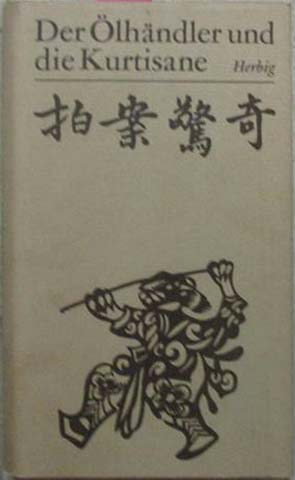 Der Ölhändler und
die Kurtisane Herbig
拍案驚奇